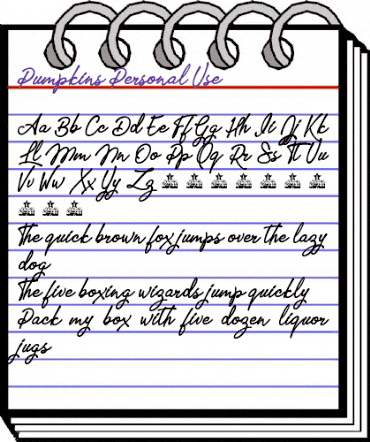 Pumpkins Personal Use
Aa Bb Cc Dd Ee Ff Gg Hh Ii Jj Kk
Ll Mm Nn Oo Pp Qq Rr Ss Tt Uu
Vv Ww Xx Yy Zz
The quick brown fox jumps over the lazy
dog
The five boxing wizards jump quickly
Pack my box with five dozen liquor
jugs